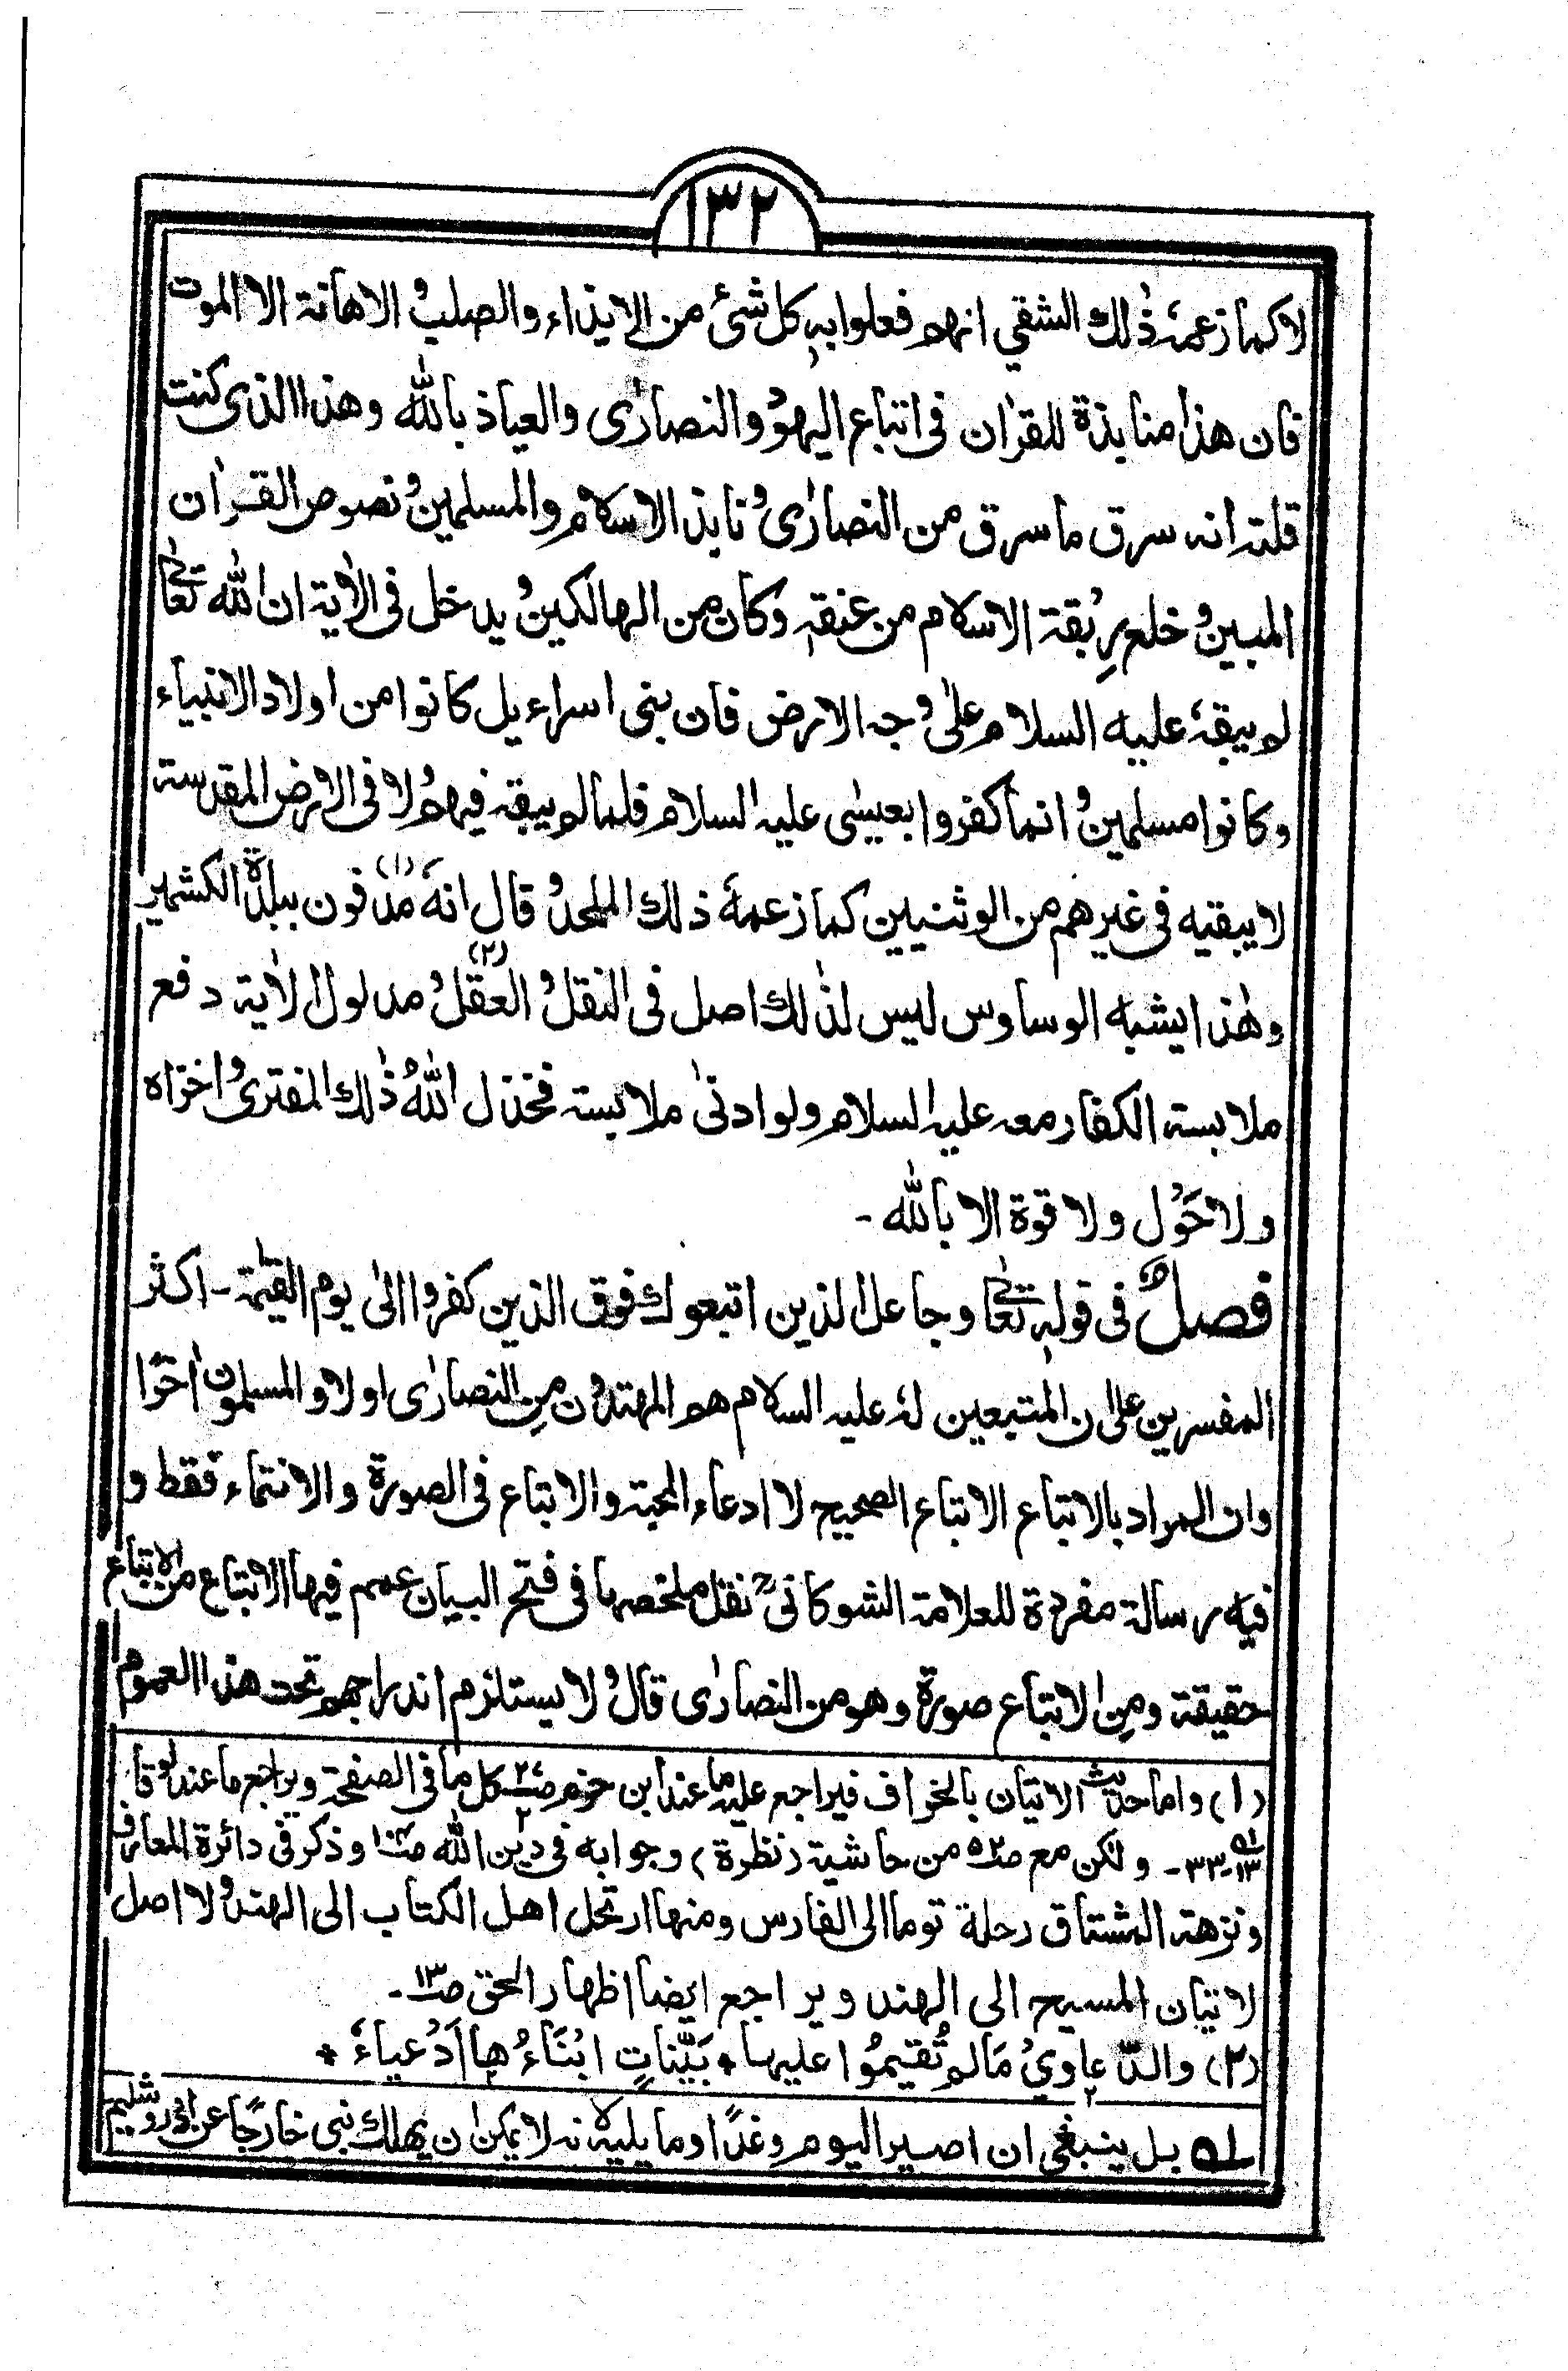 ١٣٢
لا كما زعمهٗ ذٰلك الشقي انهم فعلوا به كل شئ من الايذاء والصلب و الاهانة الا الموت
فان هذا منابذة للقراٰن فى اتباع اليهود و النصارٰى والعياذ بالله وهذا الذى كنت
قلته انه سرق ما سرق من النصارٰى و نابذ الاسلام والمسلمين و نصوص القراٰن
المبين و خلع رِبقة الاسلام من عنقه وكان من الهالكين و يدخل فى الاٰية ان الله تعالىٰ
لم يبقهٗ عليه السلام علىٰ وجه الارض فان بنى اسراءيل كانوا من اولاد الانبياء
وكانوا مسلمين و انما كفروا بعيسٰى عليه السلام فلما لم يبقه فيهم و لا فى الارض المقدسة
لا يبقيه فى غيرهم من الوثنيين كما زعمهٗ ذلك الملحد و قال انهٗ مدفون ببلدة الكشمير (١)
وهٰذا يشبه الوساوس ليس لذٰلك اصل فى النقل و العقل و (٢) مدلول الاٰية دفع
ملابسة الكفار معه عليه السلام ولو ادنىٰ ملابسة فخذل اللهُ ذٰلك المفترى و اخزاه
ولا حَوْل ولا قوة الا بالله -
فصل فى قوله تعالىٰ وجاعل الذين اتبعوك فوق الذين كفروا الىٰ يوم القيٰمة - اكثر
المفسرين على ان المتبعين لهٗ عليه السلام هم المهتدون مِن النصارٰى اولا والمسلمون اٰخرًا
وان المراد بالاتباع الاتباع الصحيح لا ادعاء المحبة والاتباع فى الصورة والانتماء فقط و
فيه رسالة مفردة للعلامة الشوكانى نقل ملخصها فى فتح البيان عمم فيها الاتباع من الاتباع
حقيقة ومِن الاتباع صورة وهو من النصارٰى قال و لا يستلزم اندراجهم تحت هذا العموم
(١) واما حديث الاتيان بالخراف فيراجع عليه ما عند ابن حزم كل ما فى الصفحة ويراجع ما عند لوقا
٣٣- ولكن مع من حاشية (نظرة) وجوابه فى دين الله وذكر فى دائرة المعارف
ونزهة المشتاق رحلة توما الى الفارس ومنها ارتحل اهل الكتاب الى الهند و لا اصل
لاتيان المسيح الى الهند ويراجع ايضا اظهار الحق صـ١٣ -
(٢) والدّعاويُ مَا لم تُقيمُوا عليها * بَيّناتٍ ابْنَاءُ هَا اَدْعياءُ *
بل ينبغى ان اصير اليوم وغدًا وما يليه لانه لا يمكن ان يهلك نبى خارجًا عن اوروشليم